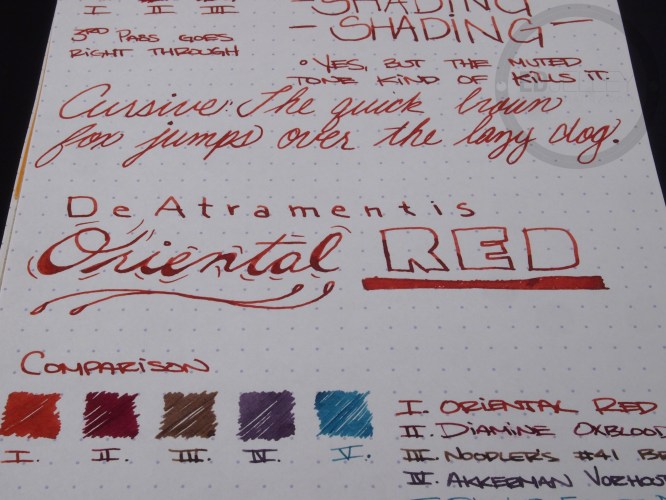 I. II. III.
3RD PASS GOES
RIGHT THROUGH
-SHADING
-SHADING-
• YES, BUT THE MUTED
TONE KIND OF KILLS IT.
Cursive: The quick brown
fox jumps over the lazy dog.
De Atramentis
Oriental RED
COMPARISON
I. II. III. IV. V.
I. ORIENTAL RED
II. DIAMINE OXBLOOD
III. NOODLER'S #41 BR
IV. AKKERMAN VORHOU